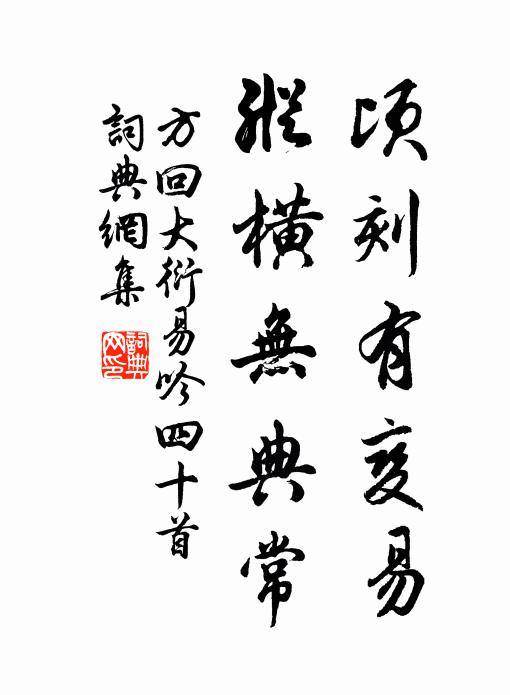 頃刻有変易
縱橫無典常
方回大衍易吟四十首
詞典網集
詞典網印